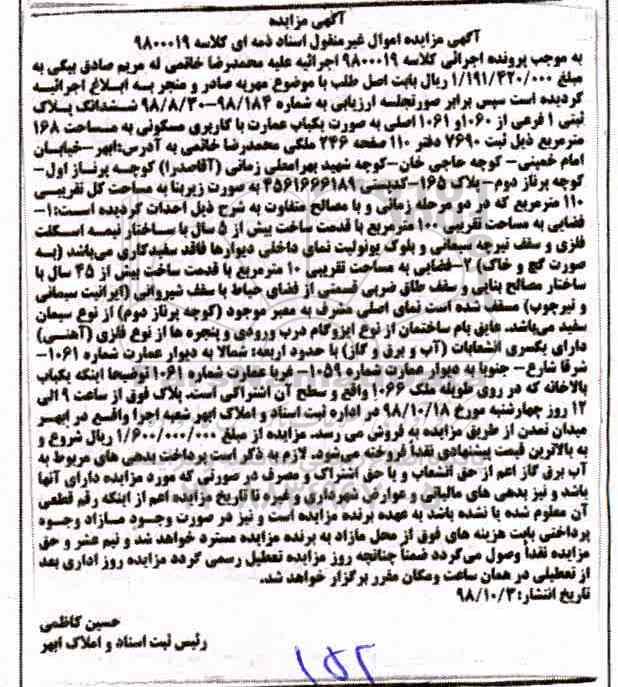 آگهی مزایده
آگهی مزایده اموال غیرمنقول اسناد ذمه ای کلاسه ۹۸۰۰۰۱۹
به موجب پرونده اجرائی کلاسه ۹۸۰۰۰۱۹ اجرائیه علیه محمدرضا خاتمی له مریم صادق بیگی به
مبلغ ۱/۱۹۱/۴۲۰/۰۰۰ ریال بابت اصل طلب با موضوع مهریه صادر و منجر به ابلاغ اجرائیه
گردیده است سپس برابر صورتجلسه ارزیابی به شماره ۹۸/۱۸۴-۹۸/۸/۳۰ ششدانگ پلاک
ثبتی ۱ فرعی از ۱۰۶۰و ۱۰۶۱ اصلی به صورت یکباب عمارت با کاربری مسکونی به مساحت ۱۶۸
مترمربع ذیل ثبت ۷۶۹۰ دفتر ۱۱۰ صفحه ۲۴۶ ملکی محمدرضا خاتمی به آدرس:ابهر-خیابان
امام خمینی- کوچه حاجی خان-کوچه شهید بهرامعلی زمانی (آقاصدرا) کوچه پرناز اول-
کوچه پرناز دوم-پلاک ۱۶۵-کدپستی ۴۵۶۱۶۶۶۱۸۹ به صورت زیربنا به مساحت کل تقریبی
۱۱۰ مترمربع که در دو مرحله زمانی و با مصالح متفاوت به شرح ذیل احداث گردیده است:۱-
فضایی به مساحت تقریبی ۱۰۰ مترمربع با قدمت ساخت بیش از ۵ سال با ساختار نیمه اسکلت
فلزی و سقف تیرچه سیمانی و بلوک یونولیت نمای داخلی دیوارها فاقد سفیدکاری می‌باشد (به
صورت گچ و خاک) ۲-فضایی به مساحت تقریبی ۱۰ مترمربع با قدمت ساخت بیش از ۴۵ سال با
ساختار مصالح بنایی و سقف طاق ضربی قسمتی از فضای حیاط با سقف شیروانی (ایرانیت سیمانی
و تیرچوب) مسقف شده است نمای اصلی مشرف به معبر موجود (کوچه پرناز دوم) از نوع سیمان
سفید می‌باشد. عایق بام ساختمان از نوع ایزوگام درب ورودی و پنجره ها از نوع فلزی (آهنی)
دارای یکسری انشعابات (آب و برق و گاز) با حدود اربعه: شمالا به دیوار عمارت شماره ۱۰۶۱-
شرقا شارع- جنوبا به دیوار عمارت شماره ۱۰۵۹- غربا عمارت شماره ۱۰۶۱ توضیحا اینکه یکباب
بالاخانه که در روی طویله ملک ۱۰۶۶ واقع و سطح آن اشتراکی است. پلاک فوق از ساعت ۹ الی
۱۲ روز چهارشنبه مورخ ۹۸/۱۰/۱۸ در اداره ثبت اسناد و املاک ابهر شعبه اجرا واقع در ابهر
میدان تمدن از طریق مزایده به فروش می رسد. مزایده از مبلغ ۱/۶۰۰/۰۰۰/۰۰۰ ریال شروع و
به بالاترین قیمت پیشنهادی نقداً فروخته می‌شود. لازم به ذکر است پرداخت بدهی های مربوط به
آب برق گاز اعم از حق انشعاب و یا حق اشتراک و مصرف در صورتی که مورد مزایده دارای آنها
باشد و نیز بدهی های مالیاتی و عوارض شهرداری و غیره تا تاریخ مزایده اعم از اینکه رقم قطعی
آن معلوم شده یا نشده باشد به عهده برنده مزایده است و نیز در صورت وجود مازاد وجوه
پرداختی بابت هزینه های فوق از محل مازاد به برنده مزایده مسترد خواهد شد و نیم عشر و حق
مزایده نقداً وصول می‌گردد ضمناً چنانچه روز مزایده تعطیل رسمی گردد مزایده روز اداری بعد
از تعطیلی در همان ساعت ومکان مقرر برگزار خواهد شد.
تاریخ انتشار:۹۸/۱۰/۳
حسین کاظمی
رئیس ثبت اسناد و املاک ابهر